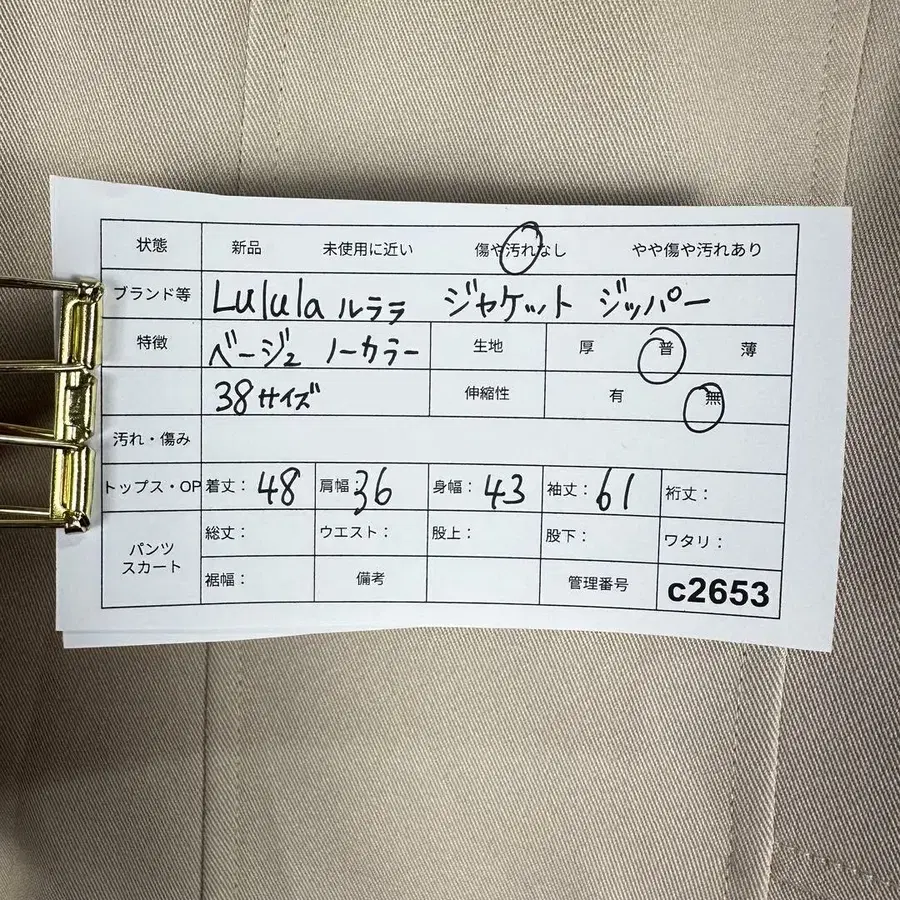 状態 新品 未使用に近い 傷や汚れなし やや傷や汚れあり
ブランド等 Lulula ルララ ジャケット ジッパー
特徴 ベージュ ノーカラー 生地 厚 普 薄
38サイズ 伸縮性 有 無
汚れ・傷み
トップス・OP 着丈: 48 肩幅: 36 身幅: 43 袖丈: 61 裄丈:
パンツ スカート 総丈: ウエスト: 股上: 股下: ワタリ:
裾幅: 備考 管理番号 c2653